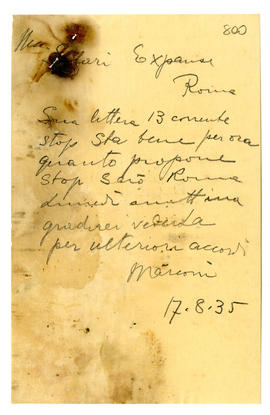 800
Expanse
Roma
Sua lettera 13 corrente
stop Sta bene per ora
quanto propone
stop Sarò Roma
lunedì mattina
gradirei vederla
per ulteriori accordi
Marconi
17.8.35